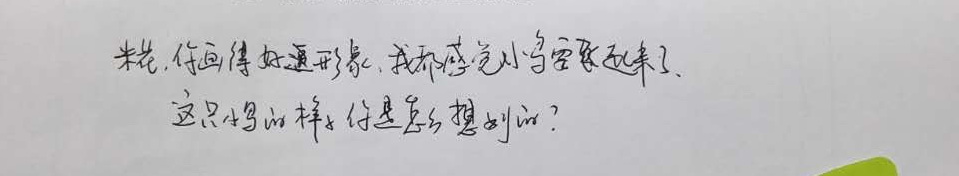 米花,你画得好逼形象,我都感觉小鸟要飞起来了、
这只小鸟的样子你是怎么想到的?